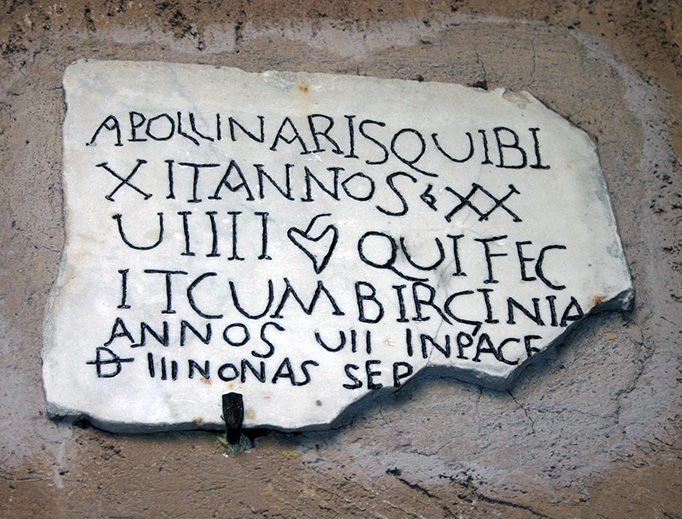 APOLLINARISQUIBI
XITANNOS XX
UIIII QUIFEC
ITCUMBIRGINIA
ANNOS UII INPACE
D IIINONAS SEP